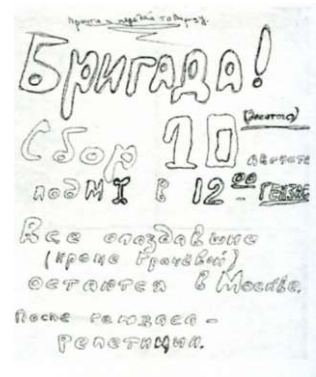 Прочти и передай товарищу.
БРИГАДА!
(десятого)
Сбор 10 августа
под МI в 12 00 -
Все опоздавшие
(кроме Грачёвой)
остаются в Москве.
После генваса -
репетиция.